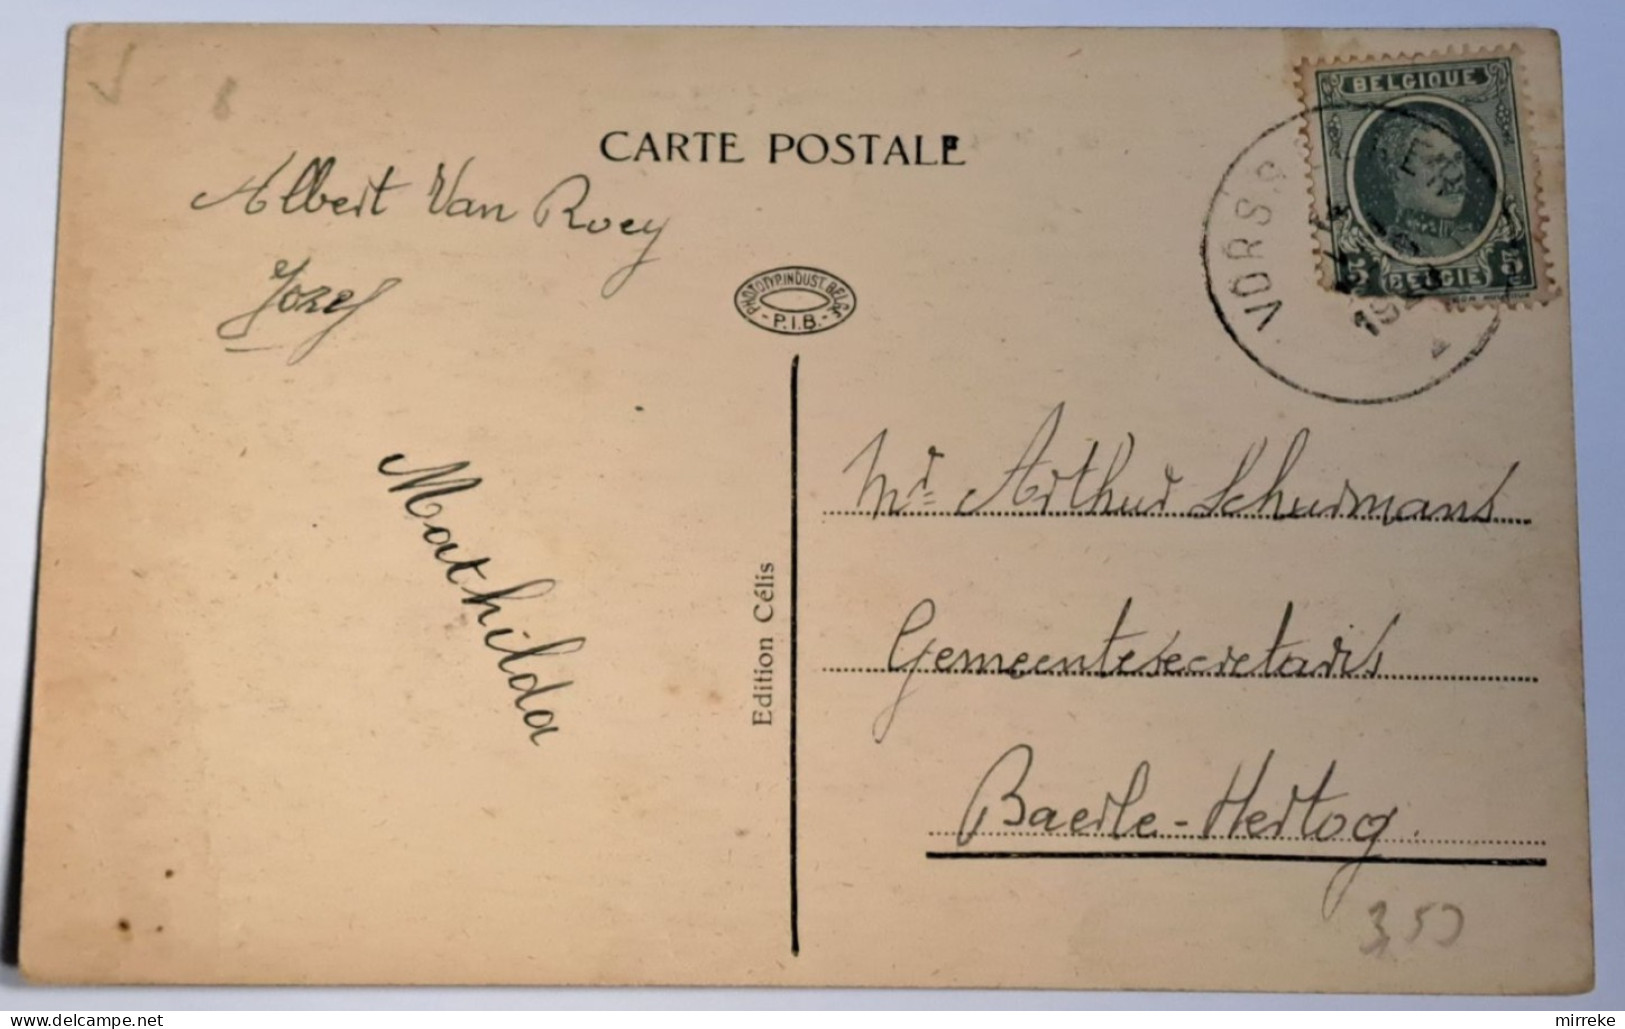 CARTE POSTALE
Albert Van Roey
Jozef
Mathilda
PHOTOTYP. INDUST. BELGE
- P.I.B. -
Edition Célis
BELGIQUE
5 BELGIË 5
Mr. Arthur Schurmans
Gemeentesecretaris
Baerle-Hertog.
3,50
mirreke